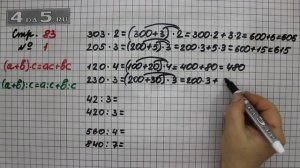 4DA5.RU
Стр. 83
№ 1
(a+b)·c=ac+bc
(a+b):c=a:c+b:c
303·2=(300+3)·2=300·2+3·2=600+6=606
205·3=(200+5)·3=200·3+5·3=600+15=615
120·4=(100+20)·4=400+80=480
230·3=(200+30)·3=200·3+
42:3=
420:3=
560:4=
840:7=